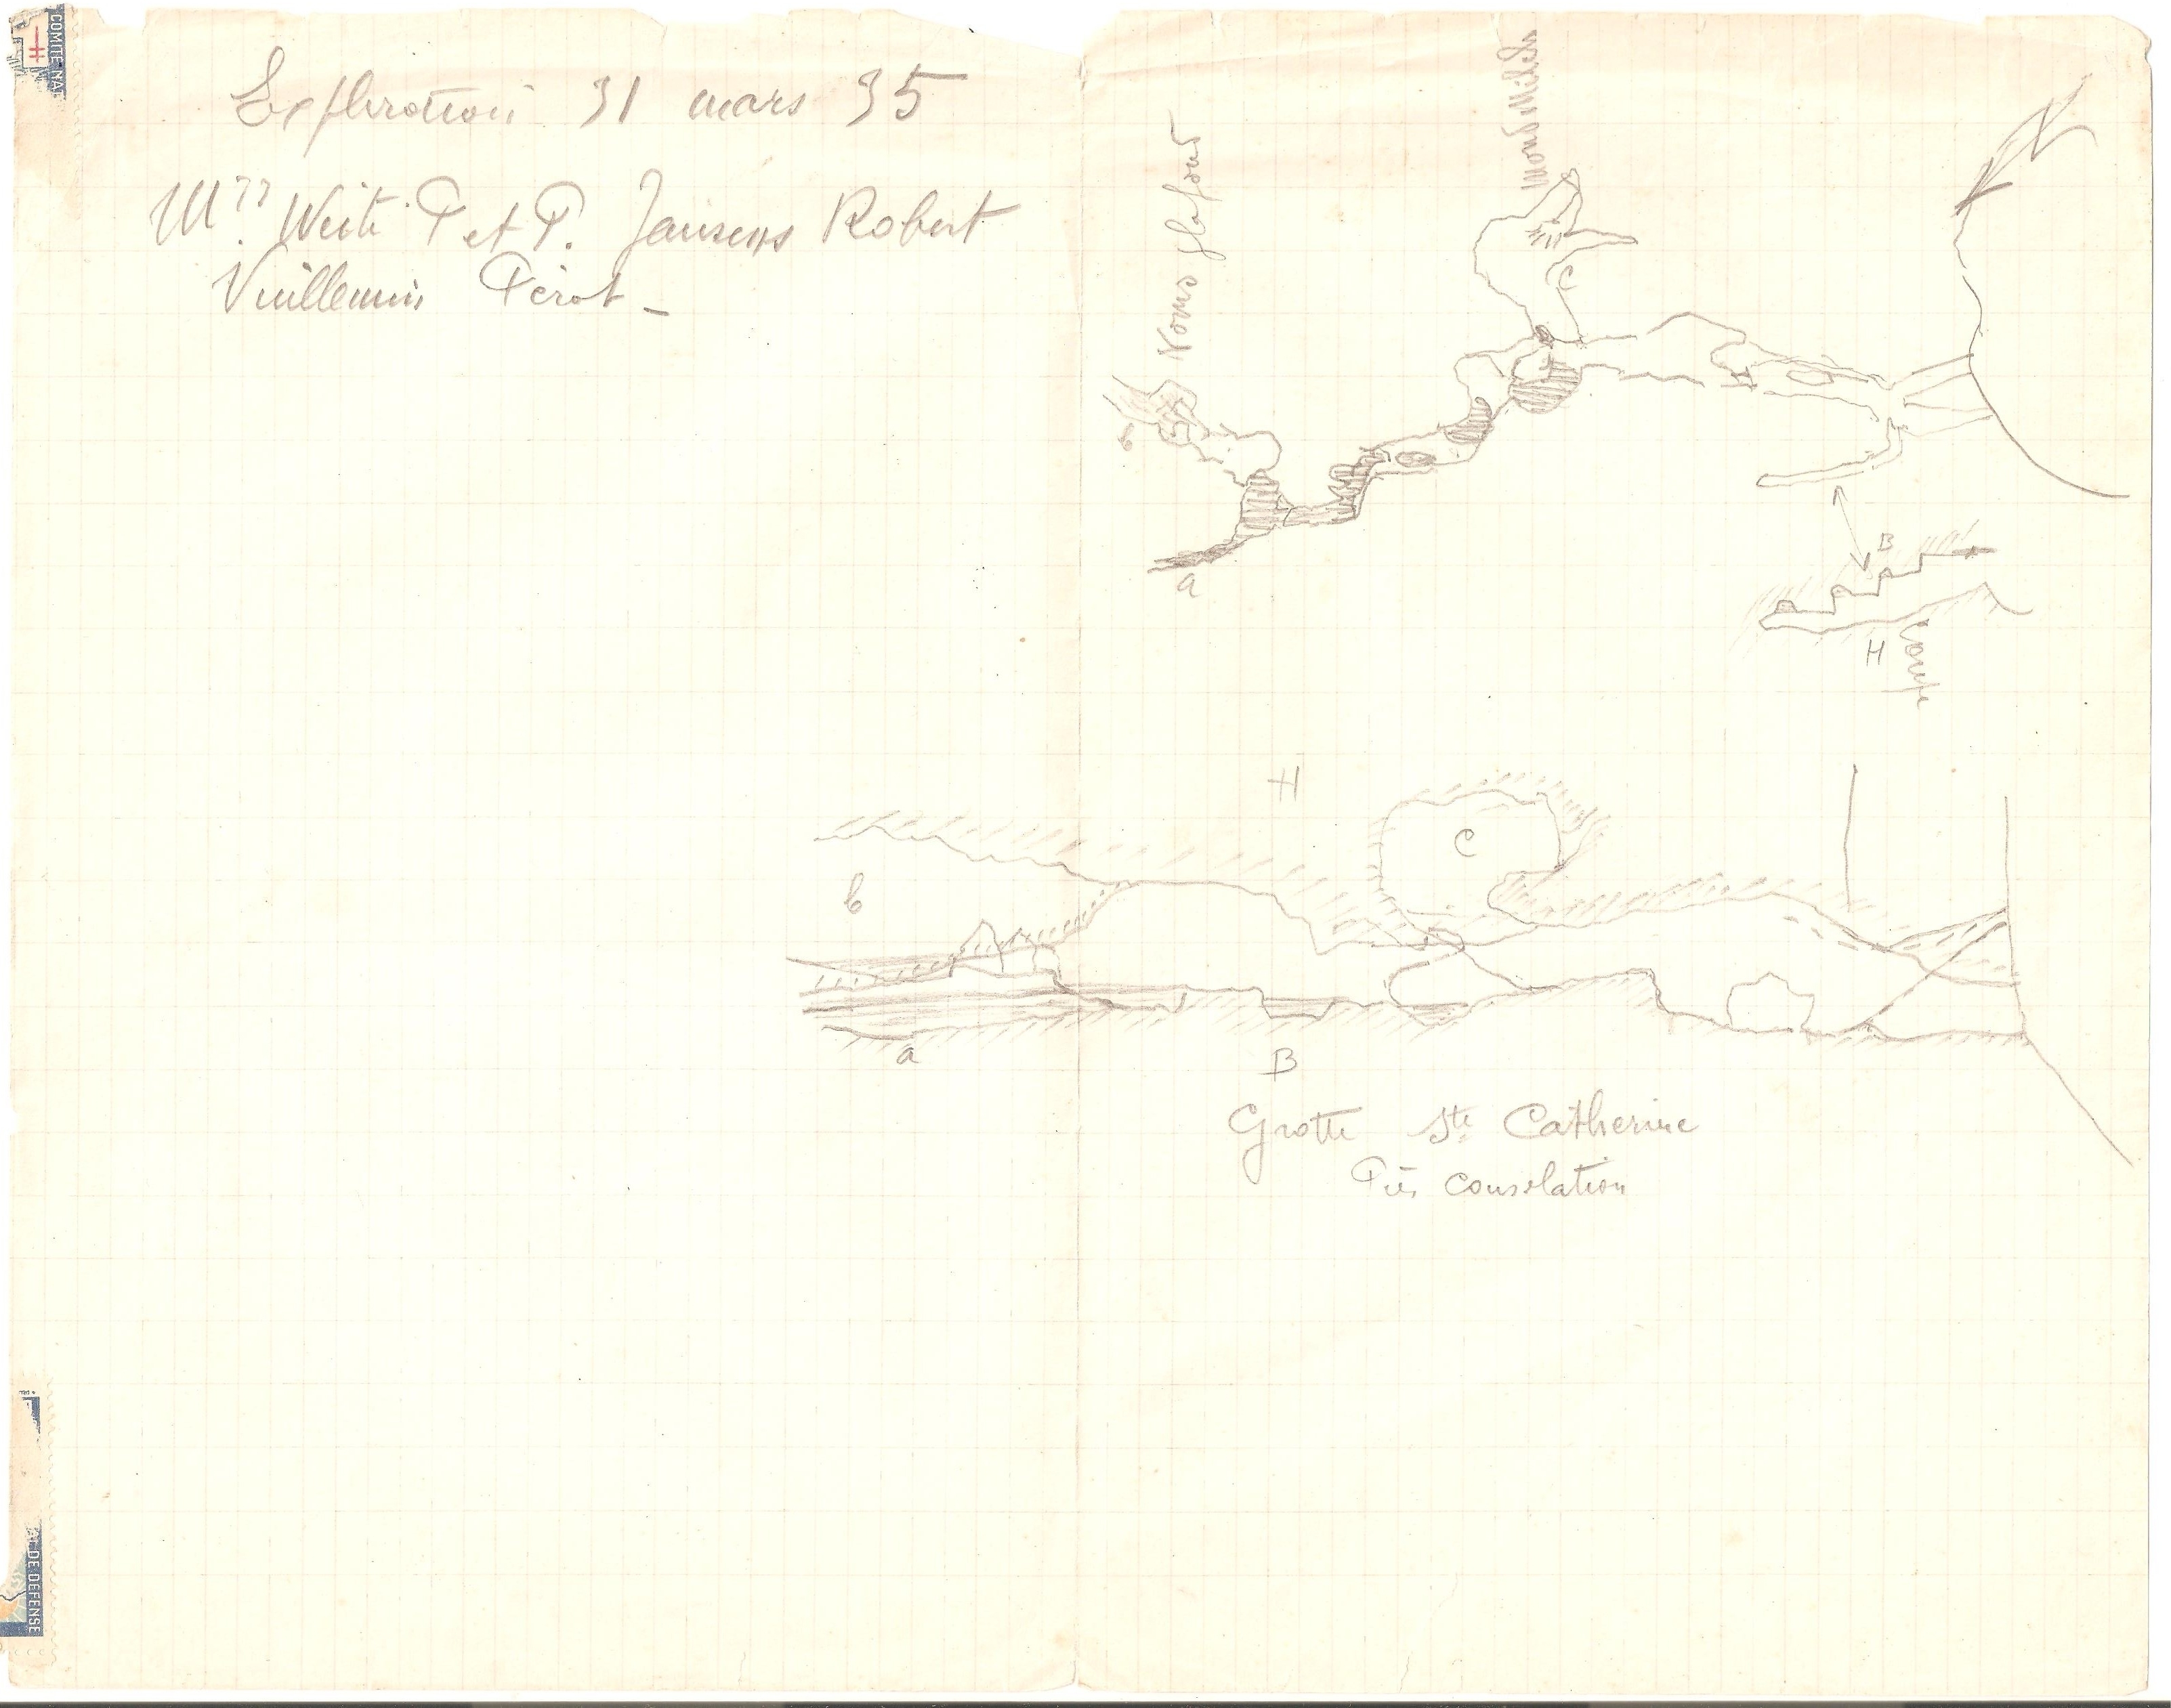 COMITE NAT
Exploration 31 mars 35
Mrs Weité P et P. Jansens Robert
Vuillemin Pérot -
Noms plafond
mond milch
C
b
a
B
H
coupe
H
C
b
a
B
Grotte Ste Catherine
Près consolation
DE DEFENSE